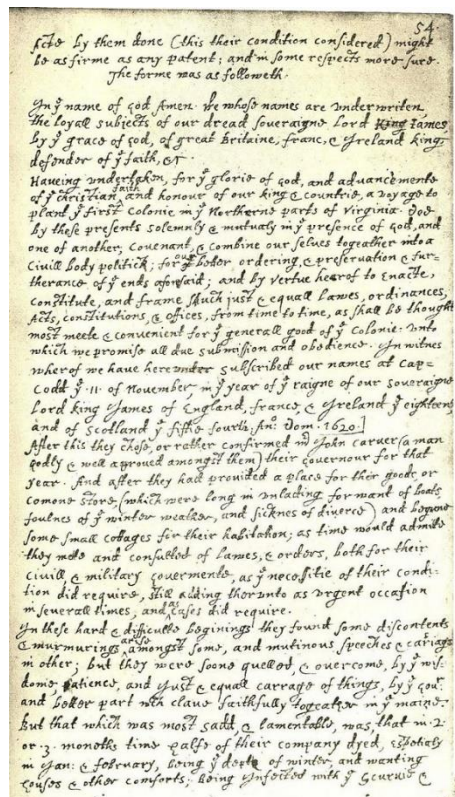 54.
Acte by them done (this their condition considered) might
be as firme as any patent; and in some respects more sure.
The forme was as followeth.
In yᵉ name of god Amen. We whose names are underwriten,
the loyall subjects of our dread soveraigne Lord King James
by yᵉ grace of god, of great Britaine, franc, & Ireland king,
defender of yᵉ faith, &c.
Haveing undertaken, for yᵉ glorie of god, and advancemente
of yᵉ christian faith and honour of our king & countrie, a voyage to
plant yᵉ first colonie in yᵉ Northerne parts of Virginia. doe
by these presents solemnly & mutualy in yᵉ presence of god, and
one of another, covenant, & combine our selves togeather into a
Civill body politick; for our better ordering, & preservation & fur=
therance of yᵉ ends aforesaid; and by vertue hearof to Enacte,
constitute, and frame shuch just & equall lawes, ordinances,
Acts, constitutions, & offices, from time to time, as shall be thought
most meete & convenient for yᵉ generall good of yᵉ colonie: unto
which we promise all due submission and obedience. In witnes
wherof we have here under subscribed our names at Cap=
Codd yᵉ .11. of November, in yᵉ year of yᵉ raigne of our soveraigne
Lord king James of England, france, & Ireland yᵉ eighteenth
and of Scotland yᵉ fiftie fourth. Anᵒ: Dom. 1620.]
After this they chose, or rather confirmed mʳ John Carver (a man
godly & well aproved amongst them) their governour for that
year. And after they had provided a place for their goods, or
comone store, (which were long in unlading for want of boats,
foulnes of yᵉ winter weather, and sicknes of diverce) and begune
some small cottages for their habitation; as time would admitte
they mette and consulted of lawes, & orders, both for their
civill & military govermente, as yᵉ necessitie of their condi=
tion did require, still adding therunto as urgent occasion
in severall times, and as cases did require.
In these hard & difficulte beginings they found some discontents
& murmurings arise amongst some, and mutinous speeches & cariags
in other; but they were soone quelled, & overcome, by yᵉ wis=
dome, patience, and just & equall carrage of things, by yᵉ Govʳ
and better part wᶜʰ clave faithfully togeather in yᵉ maine.
But that which was most sadd, & lamentable, was, that in .2.
or .3. moneths time halfe of their company dyed, espetialy
in Jan: & february, being yᵉ depth of winter, and wanting
houses & other comforts; being Infected with yᵉ Scurvie &